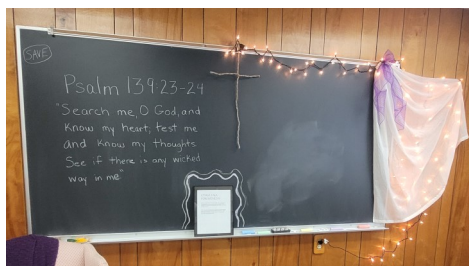 SAVE
Psalm 139:23-24
"Search me, O God, and
know my heart; test me
and know my thoughts
See if there is any wicked
way in me."